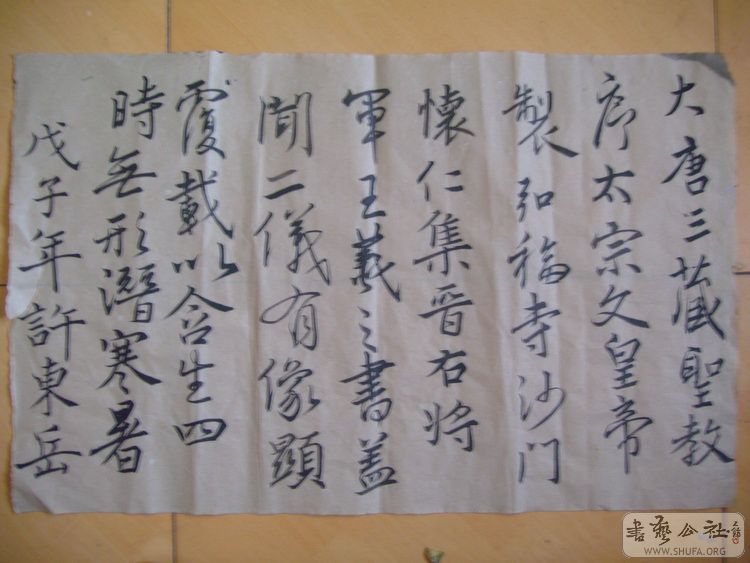 大唐三藏聖教
序太宗文皇帝
製弘福寺沙门
懷仁集晋右將
軍王羲之書盖
聞二儀有像顯
覆載以含生四
時無形潛寒暑
戊子年許東岳
書藝公社
WWW.SHUFA.ORG